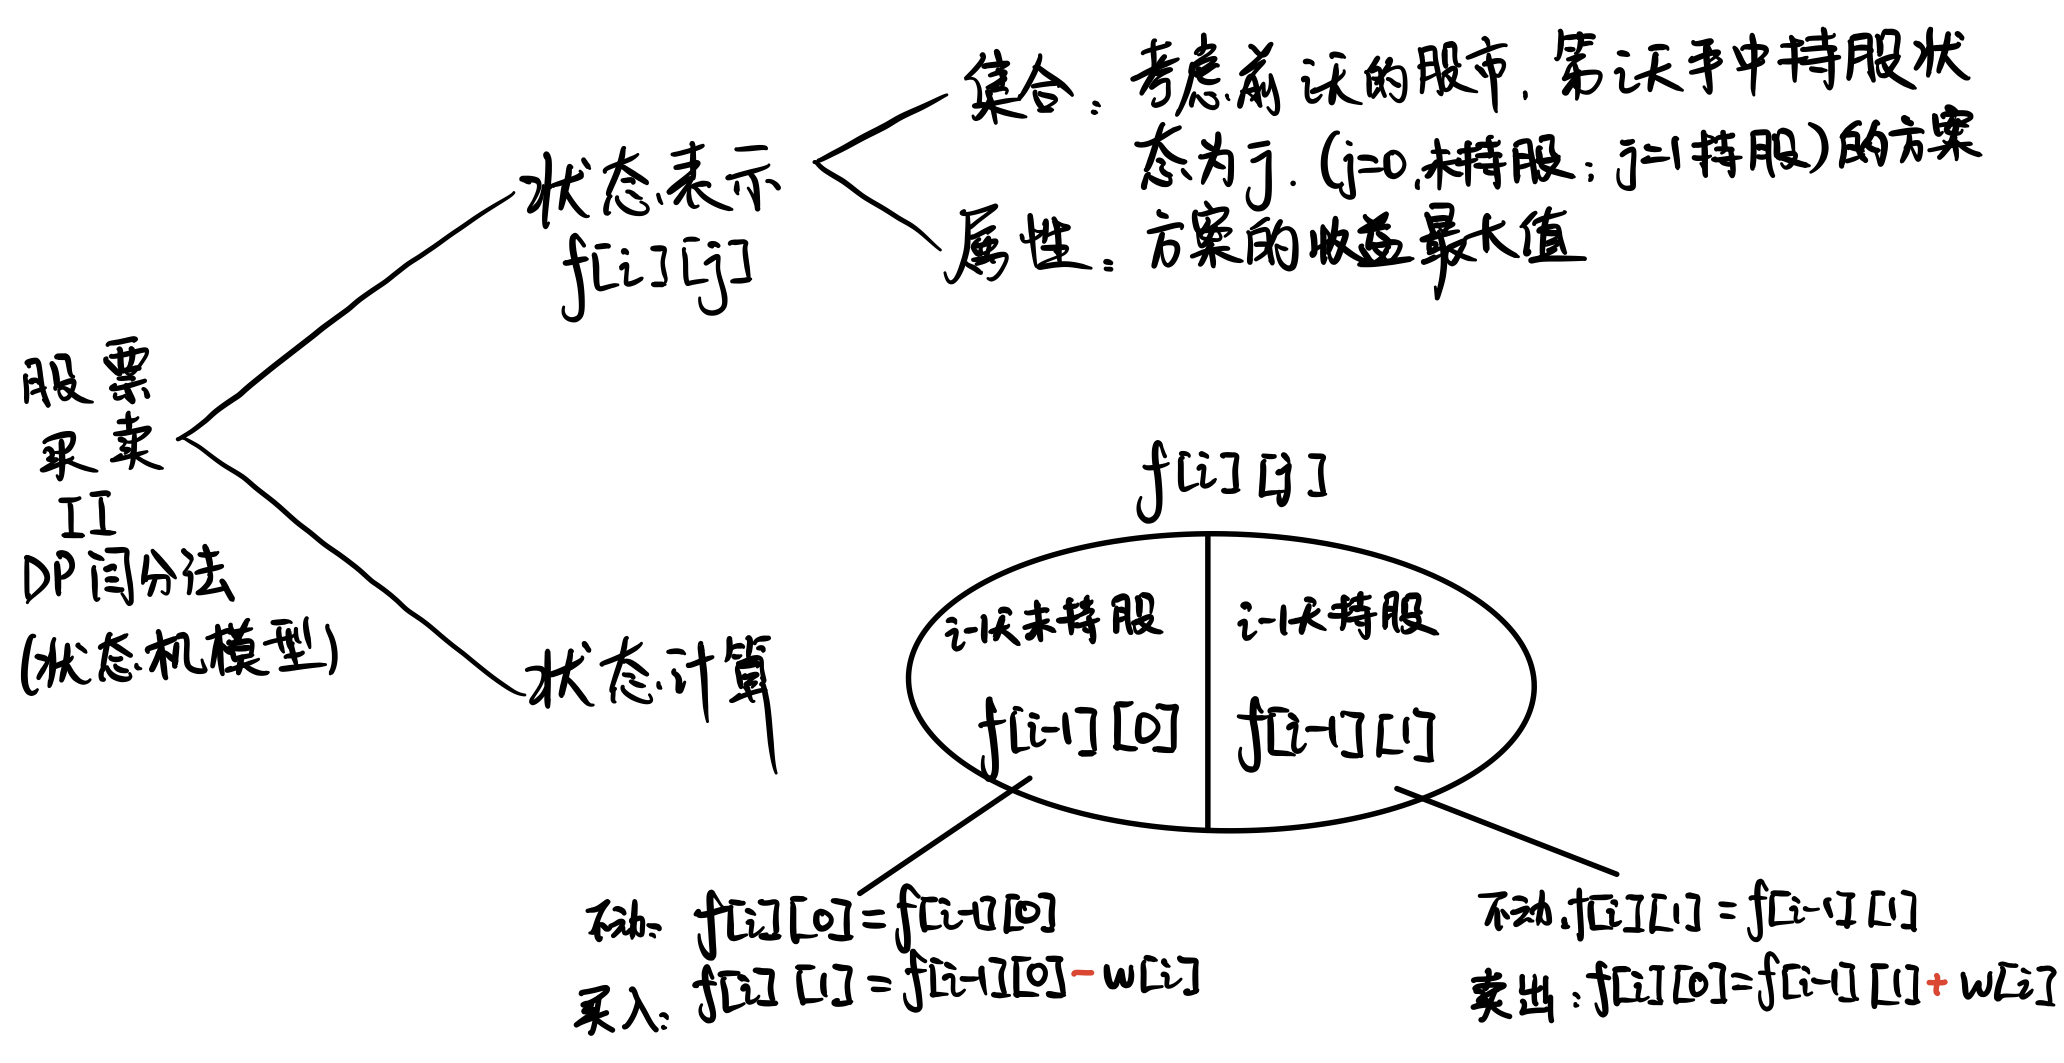 股票
买卖
II
DP闫分法
(状态机模型)
状态表示
f[i][j]
集合：考虑前i天的股市，第i天手中持股状
态为j.(j=0,未持股；j=1持股)的方案
属性：方案的收益最大值
状态计算
f[i][j]
i-1天未持股
f[i-1][0]
i-1天持股
f[i-1][1]
不动：f[i][0]=f[i-1][0]
买入：f[i][1]=f[i-1][0]-w[i]
不动：f[i][1]=f[i-1][1]
卖出：f[i][0]=f[i-1][1]+w[i]